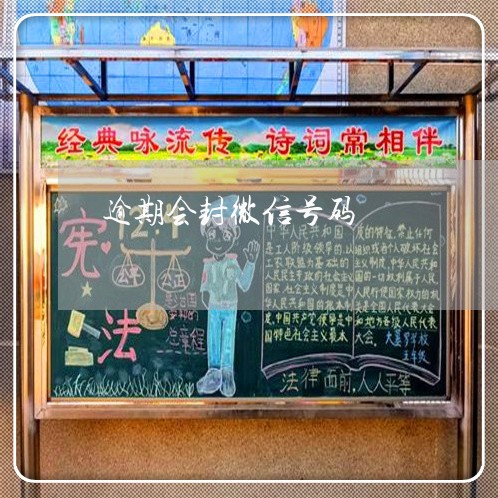 经典咏流传 诗词常相伴
逾期会封微信号码
宪
法
公平
公正
总章程
中华人民共和国
是工人阶级领导的,以
工农联盟为基础的
人民民主专政的社会主义
国家,社会主义制度是中
华人民共和国的根本制
度,中国共产党领导是中
国特色社会主义最本
质的特征,禁止任何
组织或者个人破坏社会
主义制度,中华人民共和
国的一切权利属于人民,
人民行使国家权力的机
关是全国人民代表大会
和地方各级人民代表
大会。
五年级
法律面前,人人平等